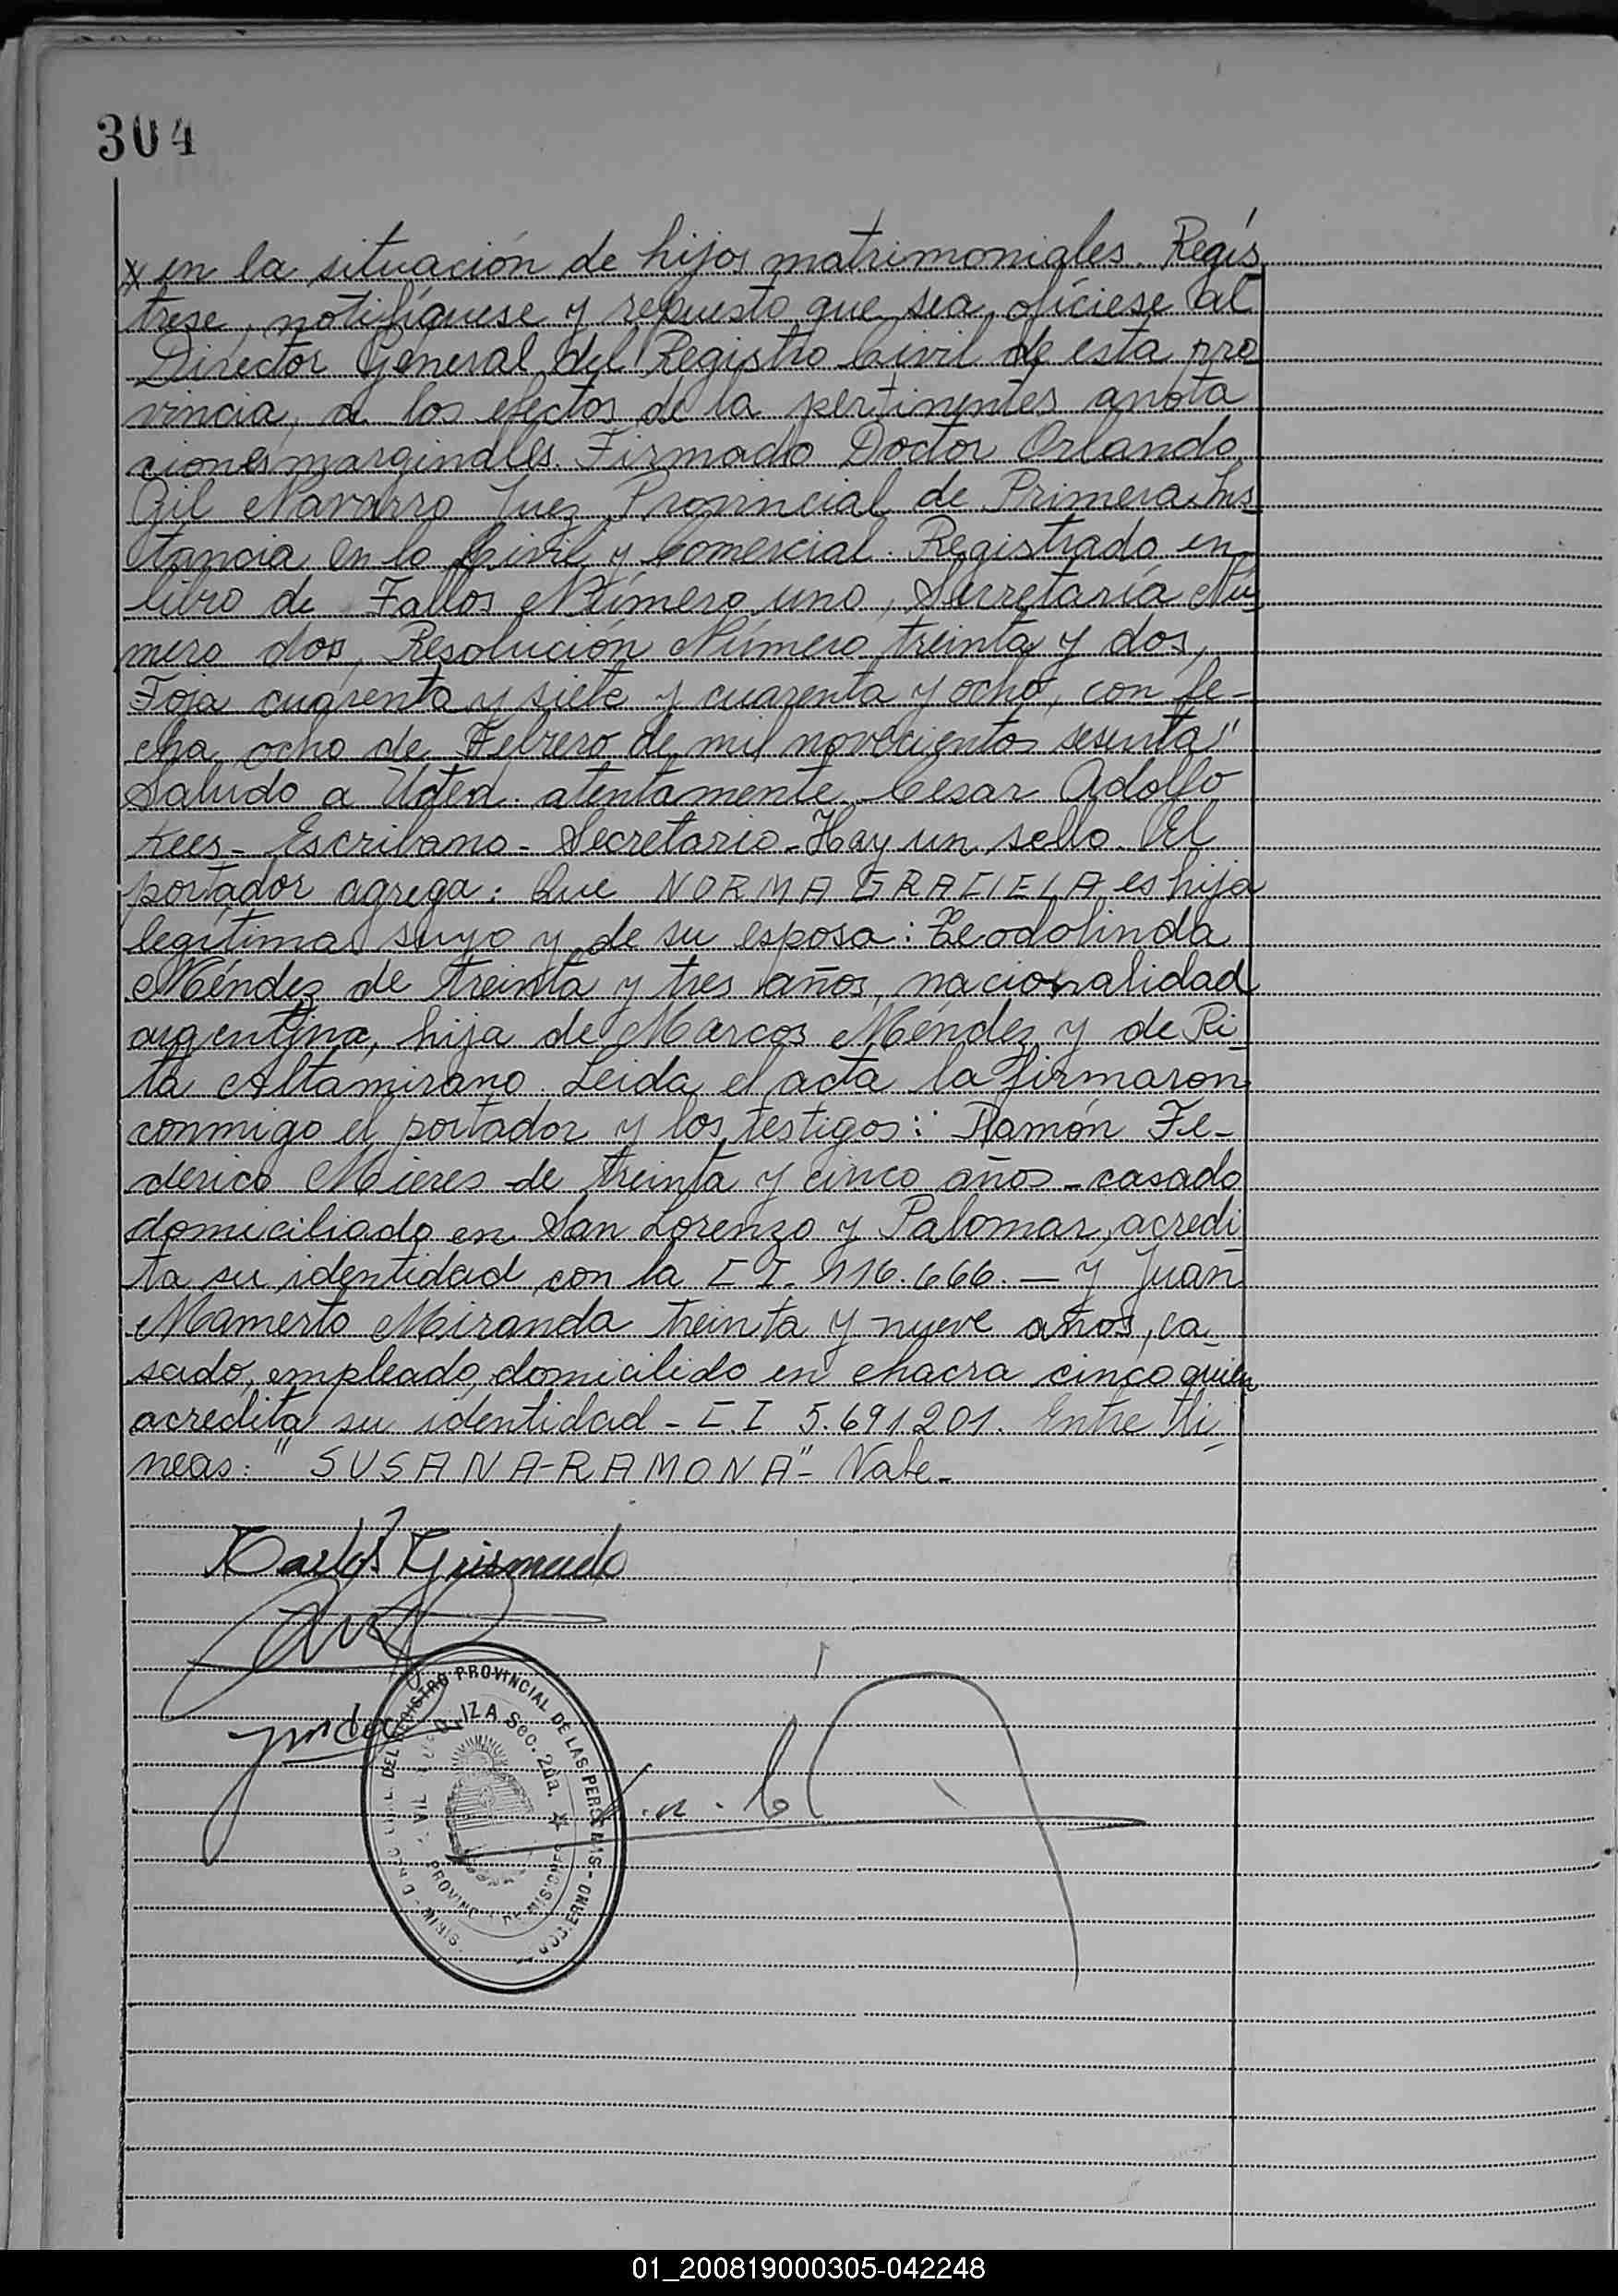 304
x en la situación de hijos matrimoniales. Regís
trese, notifíquese y repuesto que sea, ofíciese al
Director General del Registro Civil de esta pro
vincia, a los efectos de la pertinentes anota
ciones marginales. Firmado Doctor Orlando
Gil Navarro Juez Provincial de Primera Ins_
tancia en lo Civil y Comercial. Registrado en
libro de Fallos Número uno, Secretaría Nú_
mero dos, Resolución Número treinta y dos,
Foja cuarenta y siete y cuarenta y ocho, con fe-
cha ocho de Febrero de mil novecientos sesenta"
Saludo a Usted. atentamente. Cesar Adolfo
Kees - Escribano - Secretario - Hay un sello. El
portador agrega: Que NORMA GRACIELA es hija
legítima suyo y de su esposa: Teodolinda
Méndez de treinta y tres años, nacionalidad
argentina, hija de Marcos Méndez y de Ri_
ta Altamirano. Leida el acta la firmaron
conmigo el portador y los testigos: Ramón Fe-
derico Mieres de treinta y cinco años - casado
domiciliado en San Lorenzo y Palomar, acredi_
ta su identidad con la C I. 116.666. — y Juan
Mamerto Miranda treinta y nueve años, ca_
sado, empleado, domicilido en chacra cinco quien
acredita su identidad - C.I 5.691201. Entre lí_
neas: "SUSANA-RAMONA" - Vale -
Carlos Grismado
DEL REGISTRO PROVINCIAL DE LAS PERSONAS - GOBIERNO
Sec. 2da.
PROVINCIA DE MISIONES
01_200819000305-042248